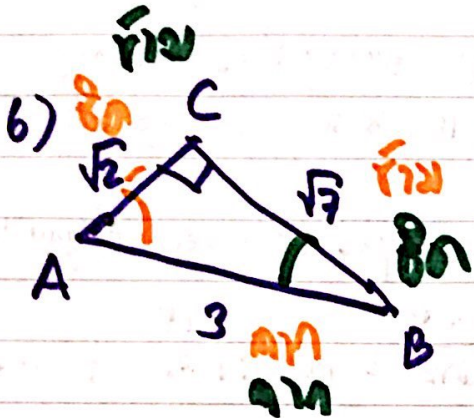 ข้าม
6) ชิด C
√2 √7 ข้าม
ชิด
A
3 ฉาก B
ฉาก